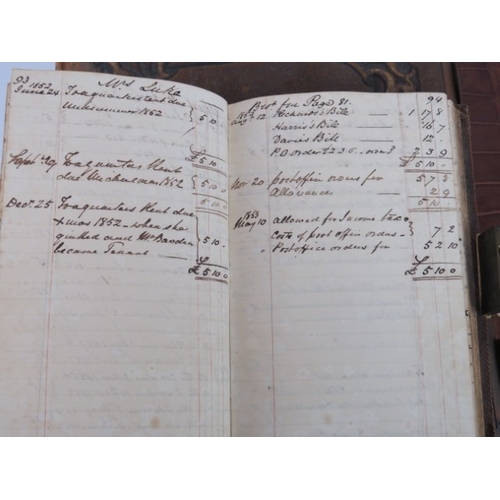 93
Mrs Luke
1852
June 24 To a quarters rent due
Midsummer 1852 } 5 10 -
£ 5 10 -
Sept 29 To a quarters Rent
due Michaelmas 1852 } 5 10 -
5 10 0
Dec. 25 To a quarters Rent due
Xmas 1852 - when she
quitted and Mr
became Tenant } 5 10 -
£ 5 10 0
94
Brot for Page 81.
1852
12 Richards's Bill 1 17 8
Harris's Bill 16 7
Davis's Bill 12
P.O order 2 3 9
£ 5 10 -
Nov. 20 Post office orders for 5 7 3
Allowances 2 9
5 10 -
1853
May 10 allowed for Income tax &
Costs of post office orders - } 7 2
" Post office orders for 5 2 10
£ 5 10 0